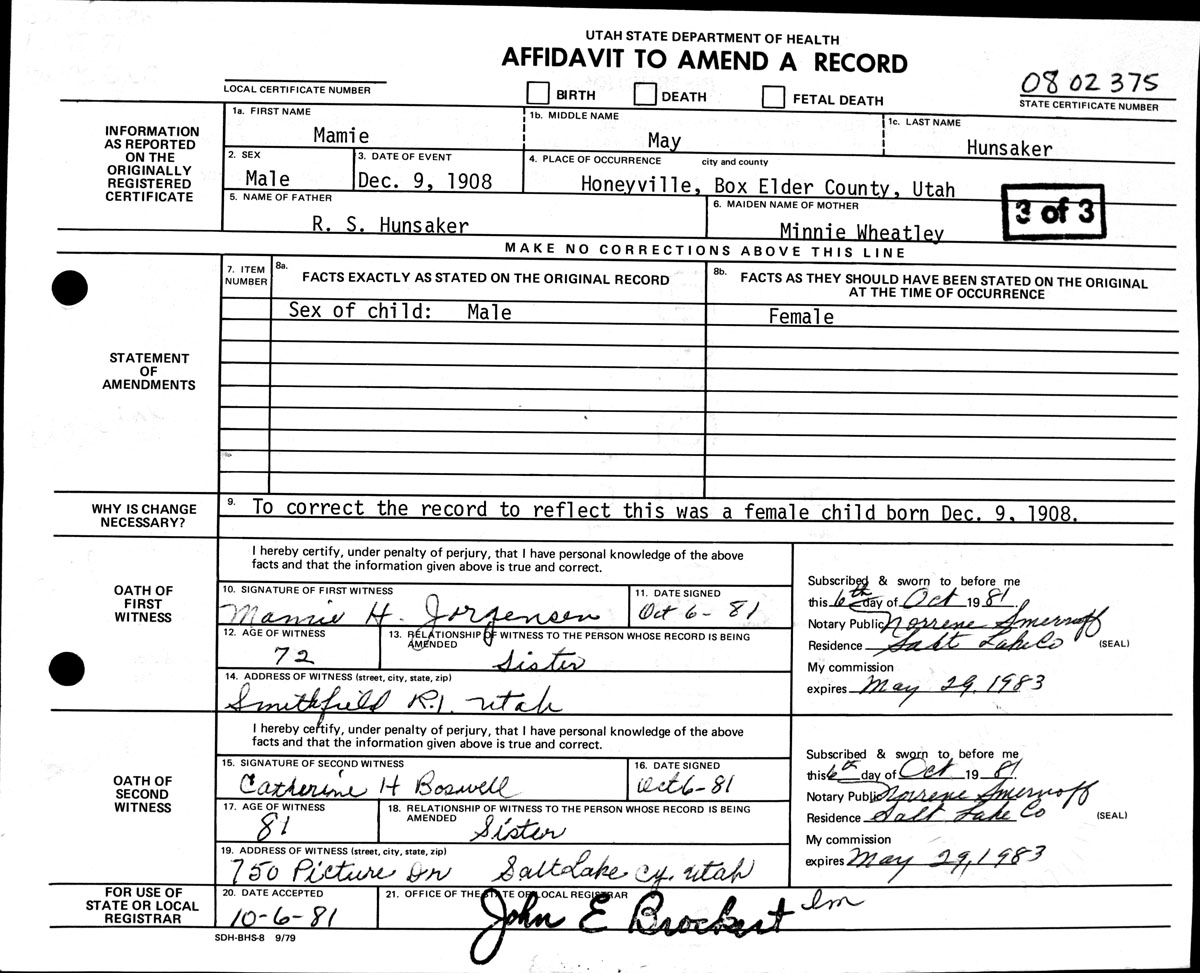 UTAH STATE DEPARTMENT OF HEALTH
AFFIDAVIT TO AMEND A RECORD
LOCAL CERTIFICATE NUMBER
BIRTH DEATH FETAL DEATH
08 02 375
STATE CERTIFICATE NUMBER
INFORMATION AS REPORTED ON THE ORIGINALLY REGISTERED CERTIFICATE
1a. FIRST NAME 1b. MIDDLE NAME 1c. LAST NAME
Mamie May Hunsaker
2. SEX 3. DATE OF EVENT 4. PLACE OF OCCURRENCE city and county
Male Dec. 9, 1908 Honeyville, Box Elder County, Utah
5. NAME OF FATHER 6. MAIDEN NAME OF MOTHER
R. S. Hunsaker Minnie Wheatley
3 of 3
MAKE NO CORRECTIONS ABOVE THIS LINE
STATEMENT OF AMENDMENTS
7. ITEM NUMBER
8a. FACTS EXACTLY AS STATED ON THE ORIGINAL RECORD
8b. FACTS AS THEY SHOULD HAVE BEEN STATED ON THE ORIGINAL
AT THE TIME OF OCCURRENCE
Sex of child: Male Female
WHY IS CHANGE NECESSARY?
9. To correct the record to reflect this was a female child born Dec. 9, 1908.
OATH OF FIRST WITNESS
I hereby certify, under penalty of perjury, that I have personal knowledge of the above
facts and that the information given above is true and correct.
10. SIGNATURE OF FIRST WITNESS 11. DATE SIGNED
Mamie H. Jorgensen Oct 6-81
12. AGE OF WITNESS 13. RELATIONSHIP OF WITNESS TO THE PERSON WHOSE RECORD IS BEING
AMENDED
72 Sister
14. ADDRESS OF WITNESS (street, city, state, zip)
Smithfield R.1. Utah
Subscribed & sworn to before me
this 6th day of Oct 1981.
Notary Public Norrene Smernoff
Residence Salt Lake Co (SEAL)
My commission
expires May 29, 1983
OATH OF SECOND WITNESS
I hereby certify, under penalty of perjury, that I have personal knowledge of the above
facts and that the information given above is true and correct.
15. SIGNATURE OF SECOND WITNESS 16. DATE SIGNED
Catherine H Boswell Oct 6-81
17. AGE OF WITNESS 18. RELATIONSHIP OF WITNESS TO THE PERSON WHOSE RECORD IS BEING
AMENDED
81 Sister
19. ADDRESS OF WITNESS (street, city, state, zip)
750 Picture Dr Salt Lake Cy. Utah
Subscribed & sworn to before me
this 6th day of Oct 1981
Notary Public Norrene Smernoff
Residence Salt Lake Co (SEAL)
My commission
expires May 29, 1983
FOR USE OF STATE OR LOCAL REGISTRAR
20. DATE ACCEPTED 21. OFFICE OF THE STATE OR LOCAL REGISTRAR
10-6-81 John E Brockert
SDH-BHS-8 9/79